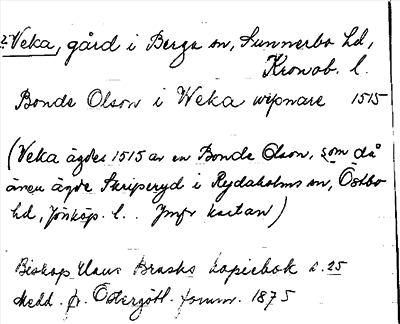 2. Veka, gård i Berga sn, Sunnerbo hd,
Kronob. l.
Bonde Olson i Weka wepnare 1515
(Veka ägdes 1515 av en Bonde Olson, som då
även ägde Skriperyd i Rydaholms sn, Östbo
hd, Jönköp. l. . Jmfr kartan)
Biskop Hans Brasks kopiebok s. 25
Medd. fr. Östergötl. fornm. 1875